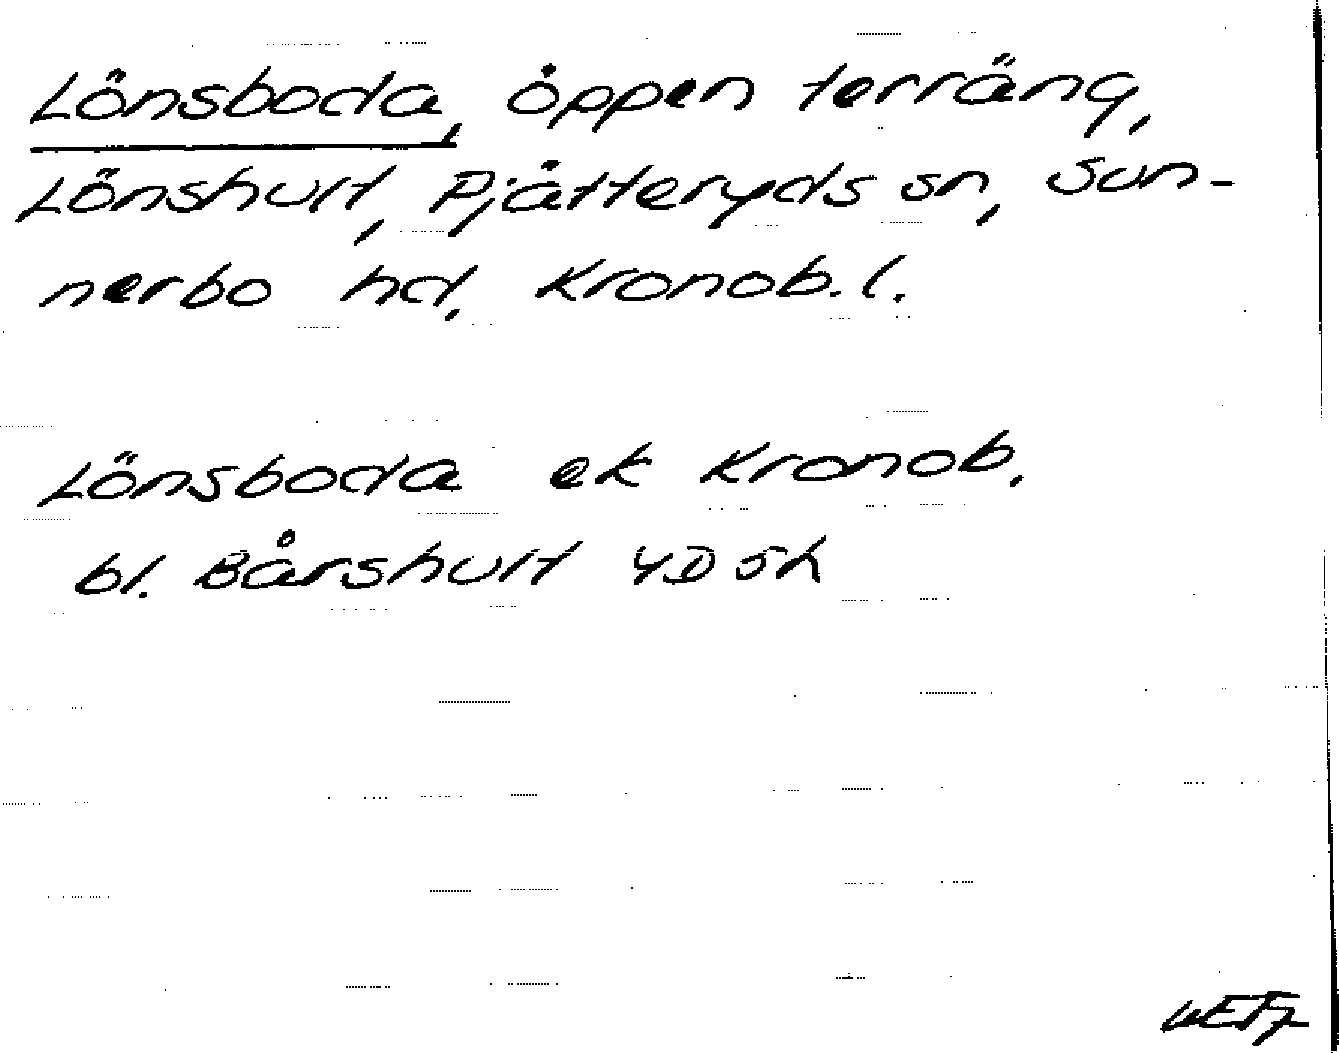 Lönsboda, öppen terräng,
Lönshult, Pjätteryds sn, Sun-
nerbo hd, Kronob. l.
Lönsboda ek Kronob.
bl. Bårshult 4D 5h